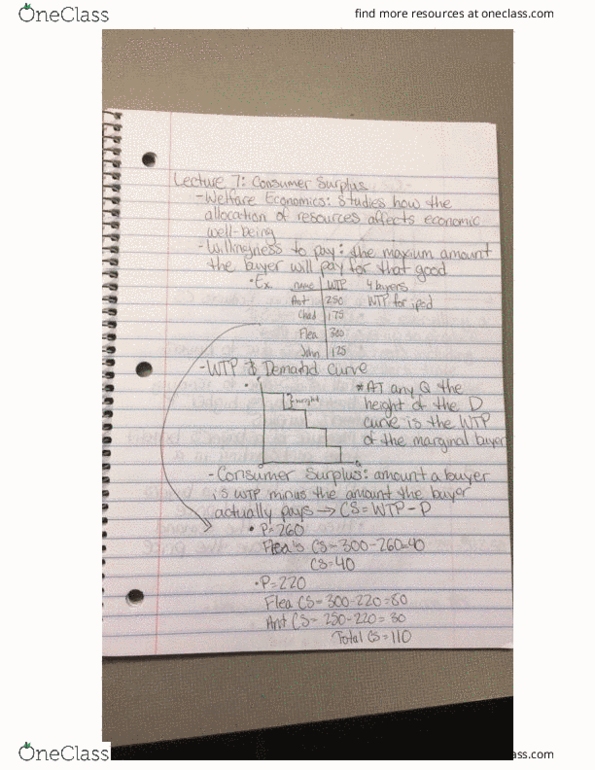 OneClass
find more resources at oneclass.com
Lecture 7: Consumer Surplus
-Welfare Economics: Studies how the
allocation of resources affects economic
well-being
-Willingness to pay: the maxium amount
the buyer will pay for that good
•Ex name WTP 4 buyers
Ant 250 WTP for ipod
Chad 175
Flea 300
John 125
-WTP & Demand Curve
*AT any Q the
height
height of the D
curve is the WTP
of the marginal buyer
-Consumer Surplus: amount a buyer
is WTP minus the amount the buyer
actually pays → CS=WTP-P
•P=260
Flea's CS=300-260=40
CS=40
•P=220
Flea CS=300-220=80
Ant CS=250-220=30
Total CS=110
OneClass
ss.com